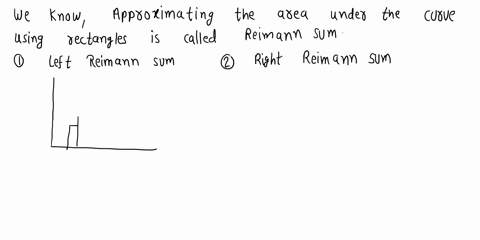 We know, Approximating the area under the curve
using rectangles is called Reimann sum.
① Left Reimann sum ② Right Reimann sum